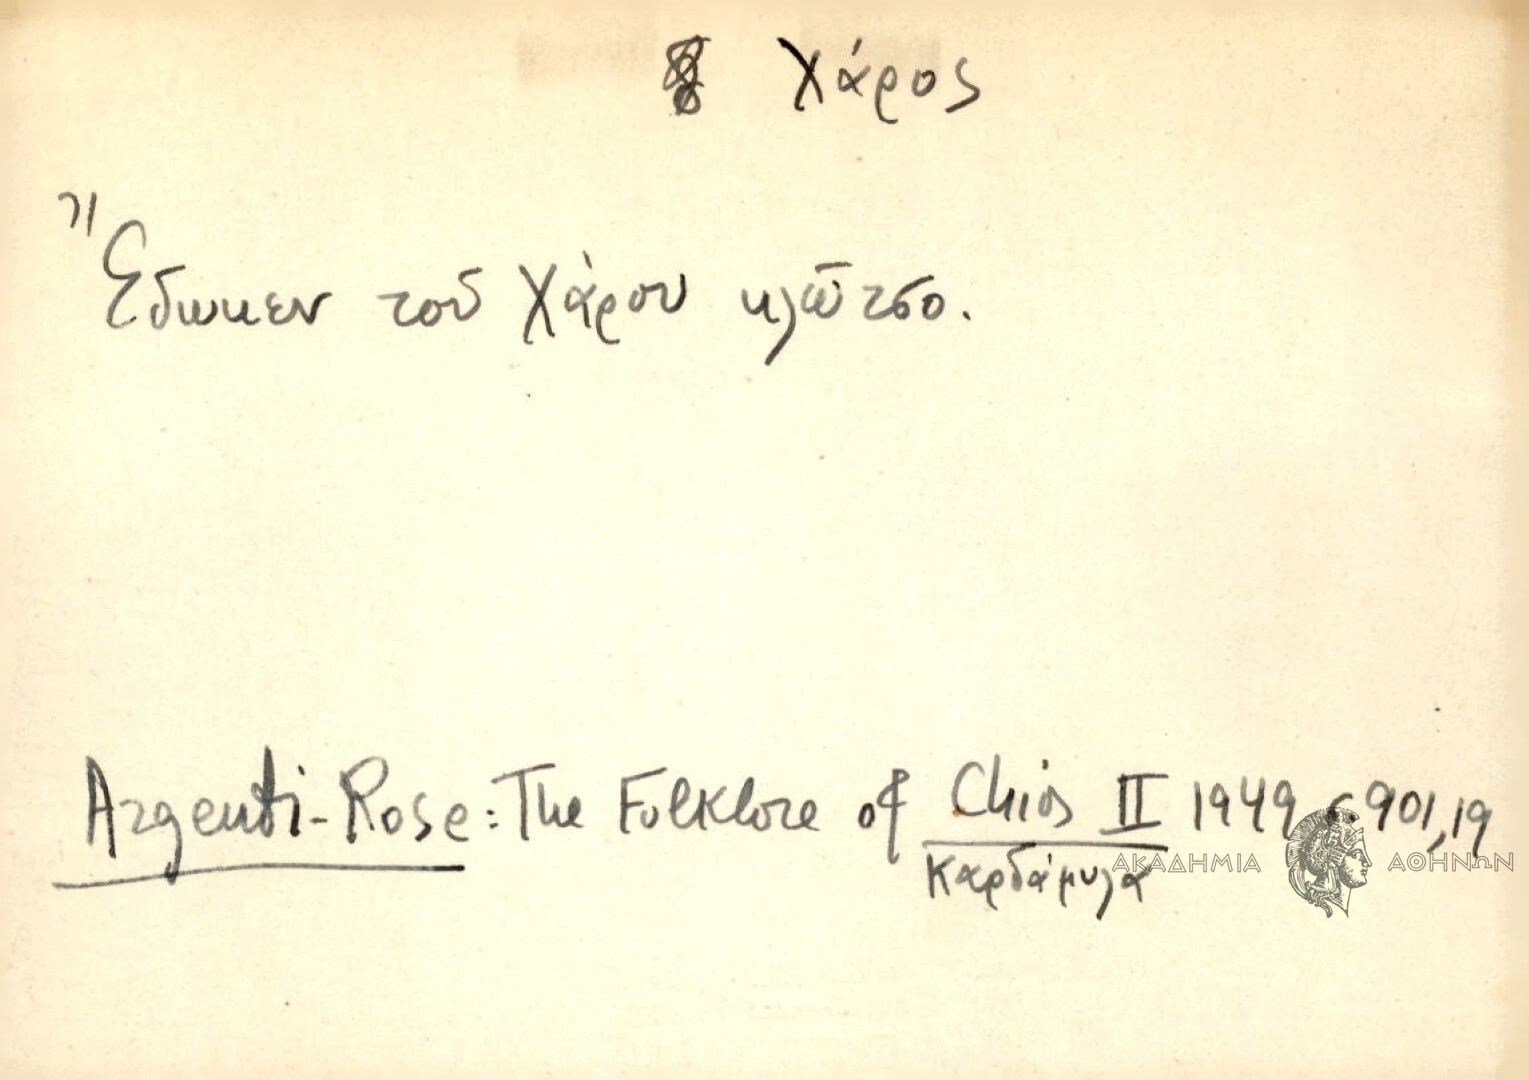 Χάρος
Ἔδωκεν τοῦ Χάρου κλῶτσο.
Argenti-Rose: The Folklore of Chios II 1949 σ 901,19
Καρδάμυλα
ΑΚΑΔΗΜΙΑ ΑΘΗΝΩΝ